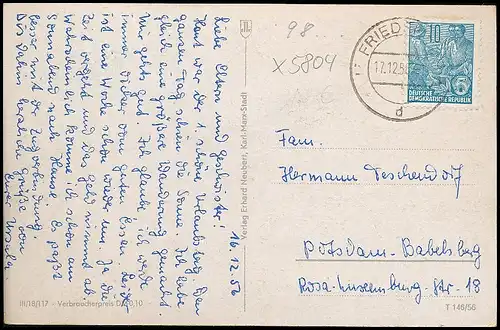 16.12.56
Liebe Eltern und Geschwister!
Heut war der 1. schöne Urlaubstag. Den
ganzen Tag schien die Sonne. Ich habe
gleich eine größere Wanderung gemacht.
Mir gehts gut. Ich glaube ich werde
immer dicker vom guten Essen. Leider
ist eine Woche schon wieder um. Ja die
Zeit vergeht und das geht niemand ab.
Wahrscheinlich komme ich schon am
Sonnabend nach Hause. Es paßt
besser mit der Zugverbindung.
Bis dahin herzliche Grüße von
Eurer Ursula.
III/18/117 - Verbraucherpreis DM 0,10
Verlag Erhard Neubert, Karl-Marx-Stadt
98...
x 5804
FRIED
17.12.5
d
10
+
5
DEUTSCHE
DEMOKRATISCHE REPUBLIK
Fam.
Hermann Teschendorf
Potsdam-Babelsberg
Rosa-Luxemburg-Str. 18
T 146/56